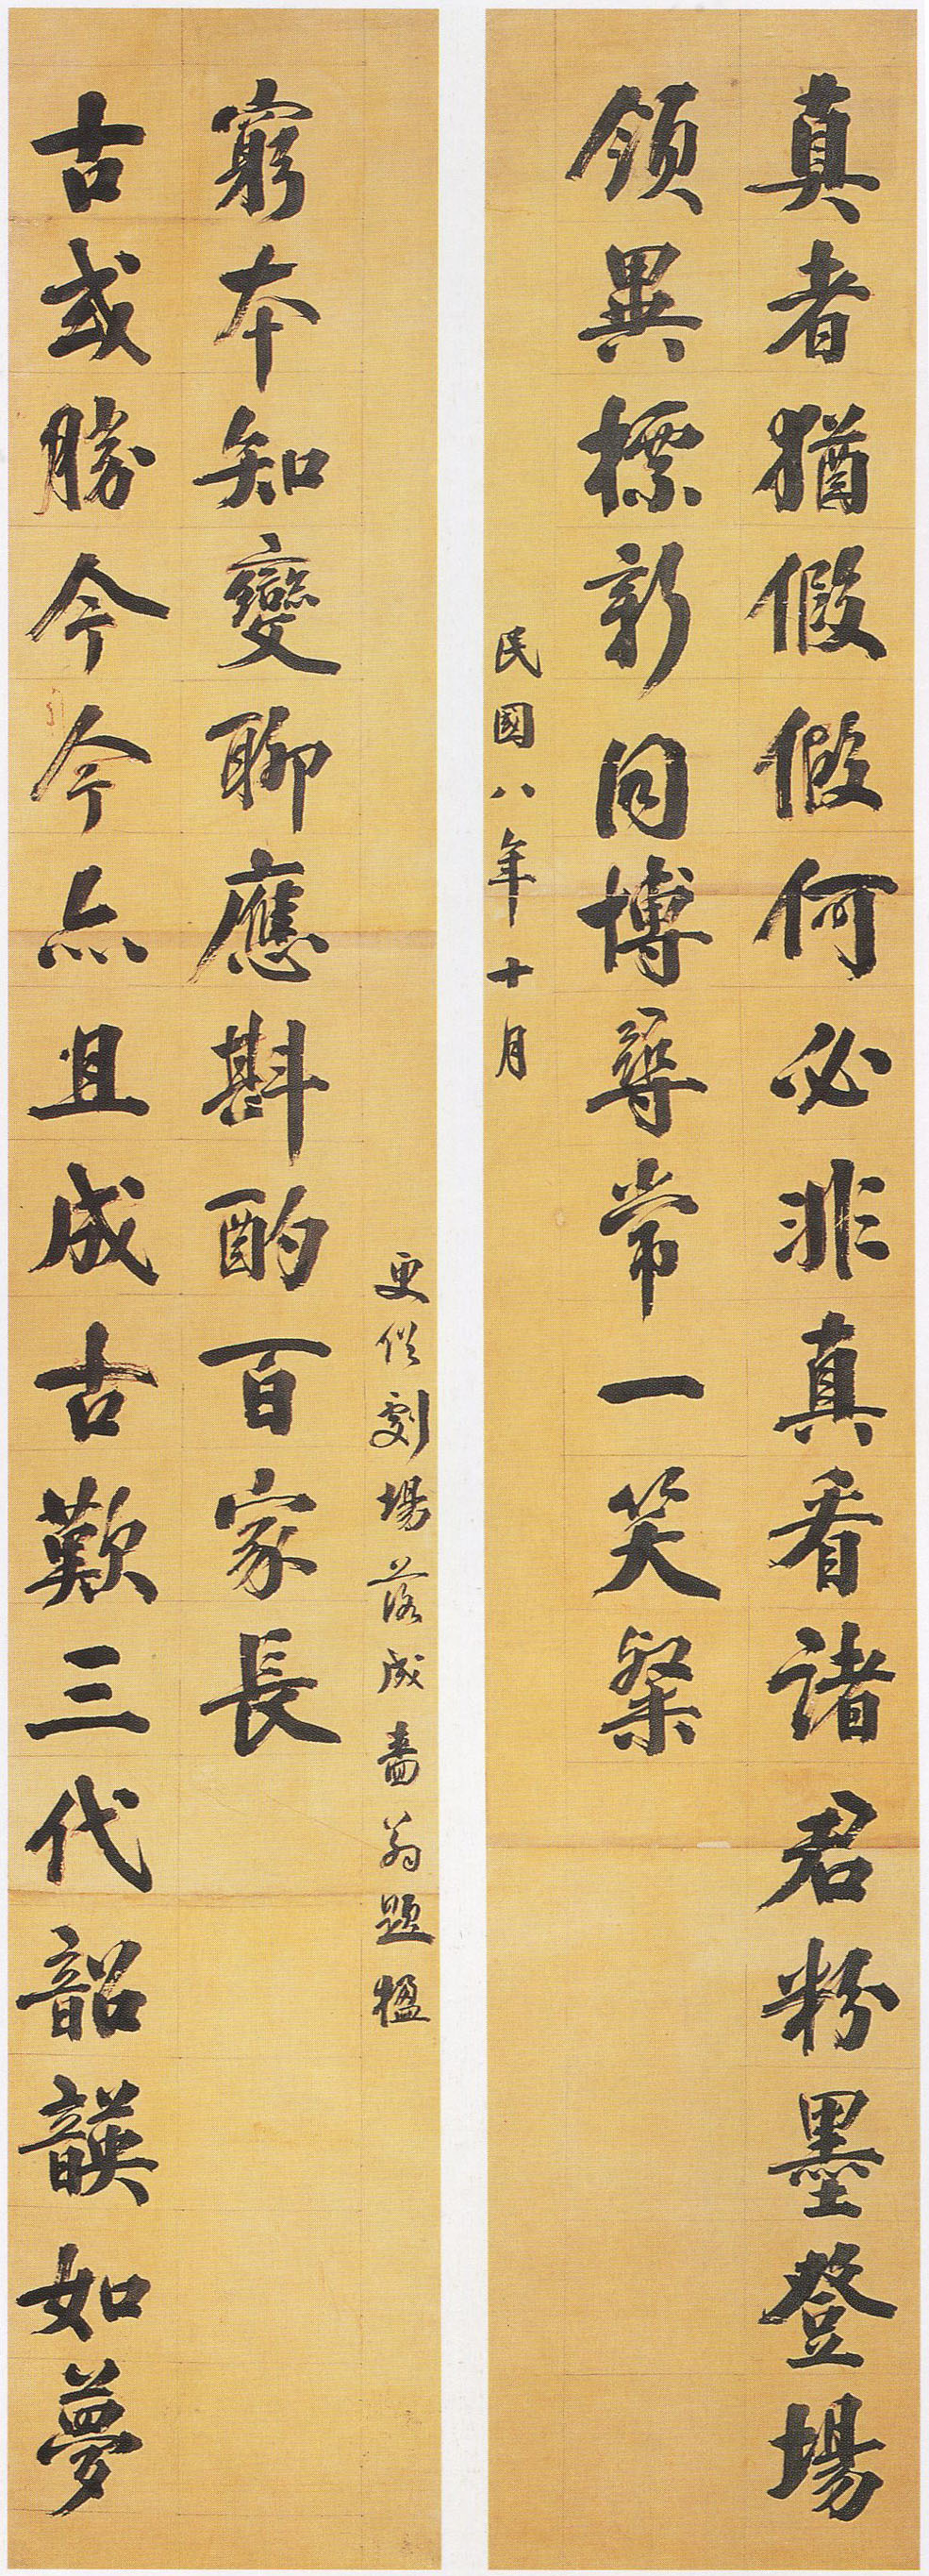 真者猶假假何必非真看諸君粉墨登場
領異標新同博尋常一笑粲
民國八年十月
古或勝今今亦且成古歎三代韶韺如夢
窮本知變聊應斟酌百家長
更俗劇場落成嗇翁題楹